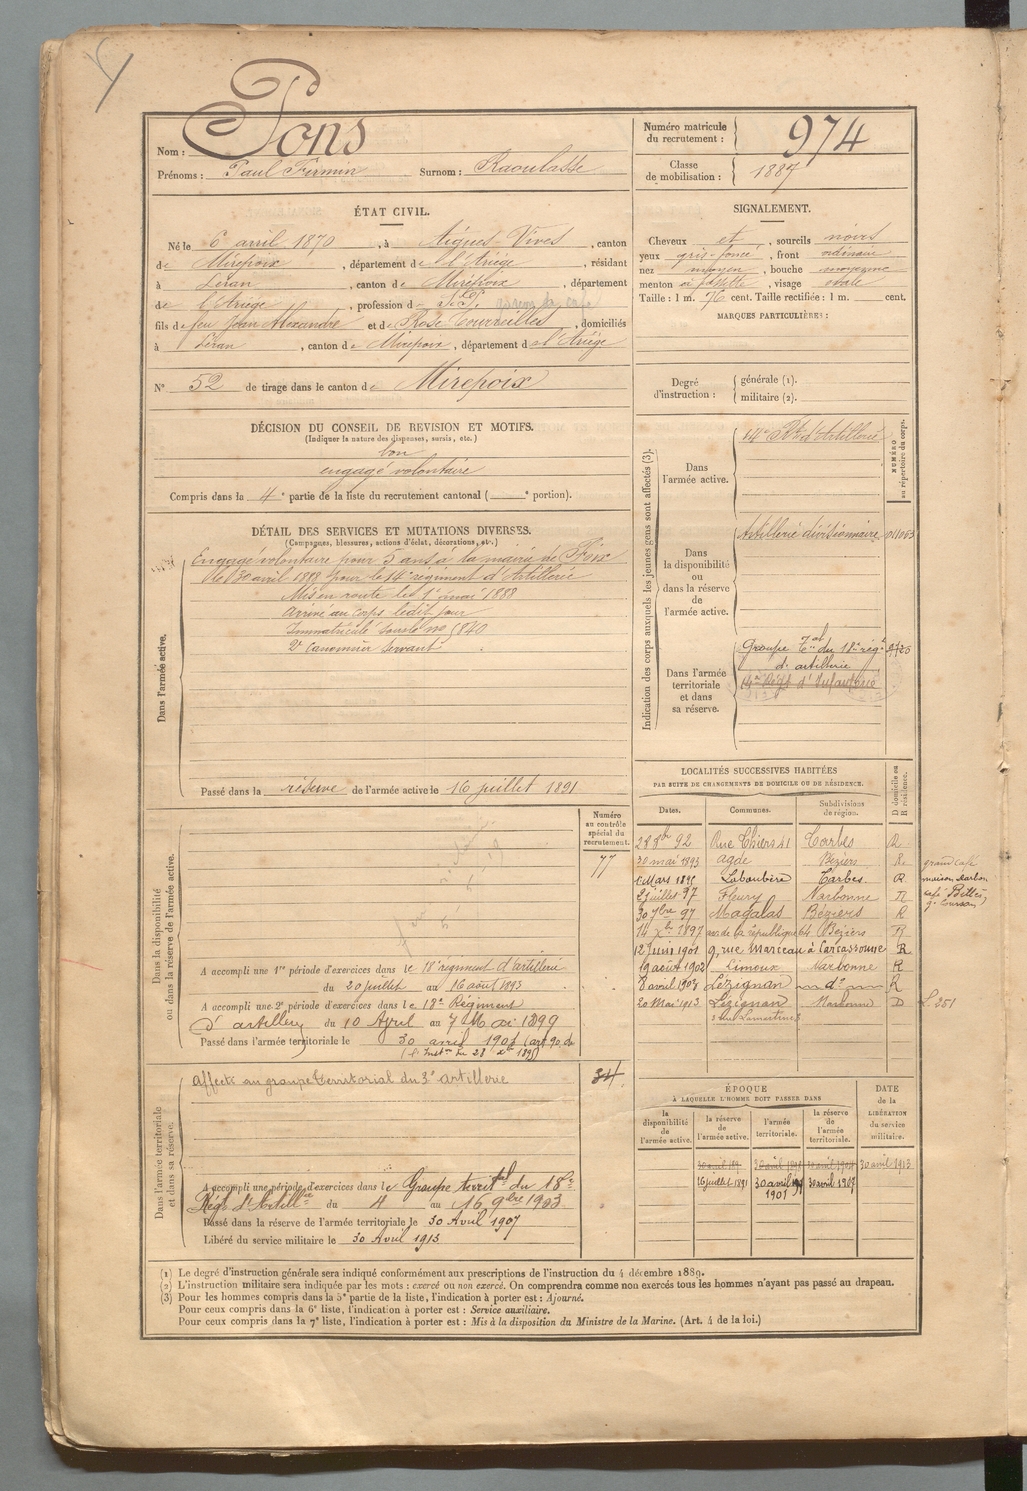 Nom : Pons
Prénoms : Paul Firmin Surnom : Raoulasse
Numéro matricule du recrutement : 974
Classe de mobilisation : 1887
ÉTAT CIVIL.
Né le 6 avril 1870, à Aigues-Vives, canton
de Mirepoix, département de l'Ariège, résidant
à Léran, canton de Mirepoix, département
de l'Ariège, profession d garçon de café
fils de feu Jean Alexandre et de Rose Tourreilles, domiciliés
à Léran, canton de Mirepoix, département de l'Ariège
N° 52 de tirage dans le canton de Mirepoix
SIGNALEMENT.
Cheveux et, sourcils noirs
yeux gris-foncé, front ordinaire
nez moyen, bouche moyenne
menton à fossette, visage ovale
Taille : 1 m. 76 cent. Taille rectifiée : 1 m. cent.
MARQUES PARTICULIÈRES :
Degré d'instruction : générale (1).
militaire (2).
DÉCISION DU CONSEIL DE REVISION ET MOTIFS.
(Indiquer la nature des dispenses, sursis, etc.)
bon
engagé volontaire
Compris dans la 4e partie de la liste du recrutement cantonal ( e portion).
DÉTAIL DES SERVICES ET MUTATIONS DIVERSES.
(Campagnes, blessures, actions d'éclat, décorations, etc.)
Dans l'armée active.
Engagé volontaire pour 5 ans à la mairie de Foix
le 30 avril 1888 pour le 14e régiment d'Artillerie
Mis en route le 1er mai 1888
Arrivé au corps ledit jour
Immatriculé sous le no 5840
2e Canonnier servant
Passé dans la réserve de l'armée active le 16 juillet 1891
Indication des corps auxquels les jeunes gens sont affectés (3).
NUMÉRO au répertoire du corps.
Dans l'armée active.
14e Rgt d'Artillerie
Dans la disponibilité ou dans la réserve de l'armée active.
Artillerie divisionnaire
Dans l'armée territoriale et dans sa réserve.
Groupe Tal du 18e régt
d'artillerie
14e Régt d'Infanterie
LOCALITÉS SUCCESSIVES HABITÉES
PAR SUITE DE CHANGEMENTS DE DOMICILE OU DE RÉSIDENCE.
Dates. Communes. Subdivisions de région. D domicile ou R résidence.
28 8bre 92 Rue Thiers 41 Tarbes R
30 mai 1893 Agde Béziers R grand café
Mars 1895 Laloubère Tarbes R maison
2 juillet 97 Fleury Narbonne R café
30 7bre 97 Magalas Béziers R
14 Xbre 1897 av. de la république 64 Béziers R
12 Juin 1901 9, rue Marceau à Carcassonne R
19 août 1902 Limoux Narbonne R
8 avril 1903 Lézignan d° R
20 Mai 1913 Lézignan Narbonne D L. 251
rue Lamartine
Dans la disponibilité ou dans la réserve de l'armée active.
Numéro au contrôle spécial du recrutement.
77
A accompli une 1re période d'exercices dans le 18e régiment d'artillerie
du 20 juillet au 16 août 1893
A accompli une 2e période d'exercices dans le 18e Régiment
d'artillerie du 10 Avril au 7 Mai 1899
Passé dans l'armée territoriale le 30 avril 1901 (art 90 de
l'Inston du 28 Xbre 1895)
Dans l'armée territoriale et dans sa réserve.
Affecté au groupe territorial du 3e artillerie
34
A accompli une période d'exercices dans le Groupe territal du 18e
Régt d'Artillrie du 4 au 16 9bre 1903
Passé dans la réserve de l'armée territoriale le 30 Avril 1907
Libéré du service militaire le 30 Avril 1913
ÉPOQUE
À LAQUELLE L'HOMME DOIT PASSER DANS
la disponibilité de l'armée active. la réserve de l'armée active. l'armée territoriale. la réserve de l'armée territoriale.
DATE de la LIBÉRATION du service militaire.
30 avril 1913
16 juillet 1891 30 avril 1901 30 avril 1907
(1) Le degré d'instruction générale sera indiqué conformément aux prescriptions de l'instruction du 4 décembre 1889.
(2) L'instruction militaire sera indiquée par les mots : exercé ou non exercé. On comprendra comme non exercés tous les hommes n'ayant pas passé au drapeau.
(3) Pour les hommes compris dans la 5e partie de la liste, l'indication à porter est : Ajourné.
Pour ceux compris dans la 6e liste, l'indication à porter est : Service auxiliaire.
Pour ceux compris dans la 7e liste, l'indication à porter est : Mis à la disposition du Ministre de la Marine. (Art. 4 de la loi.)